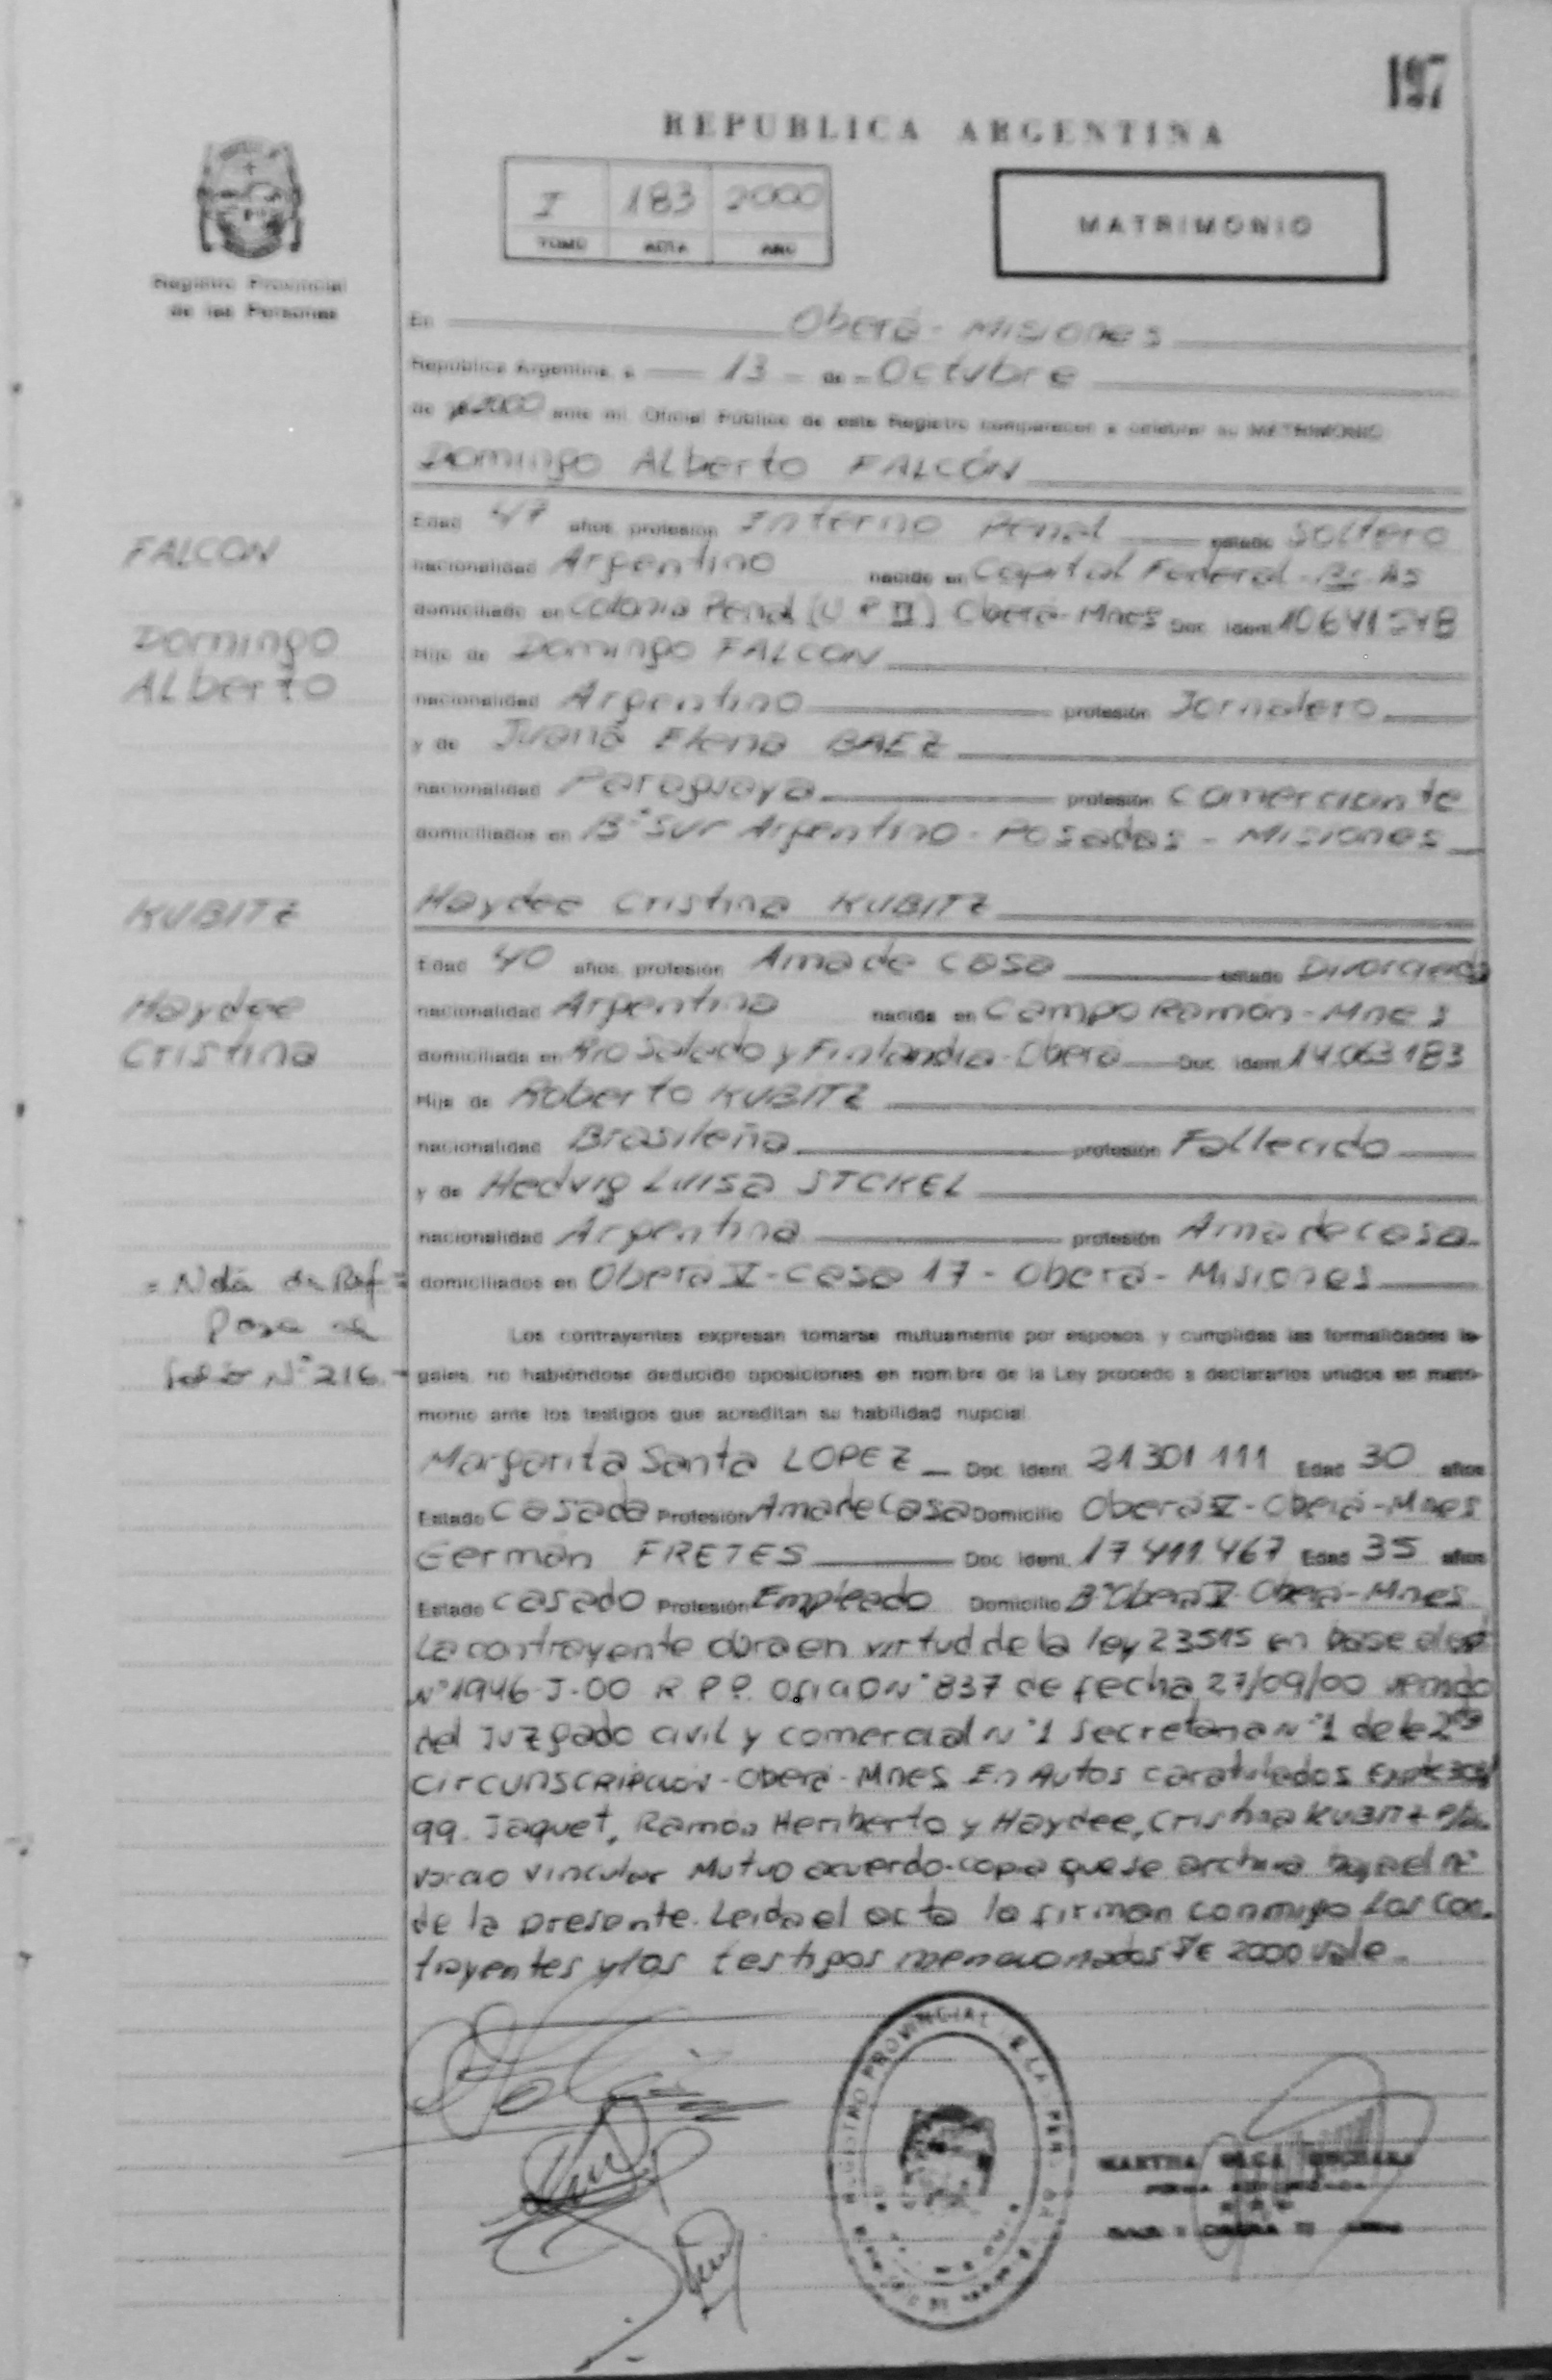 197
REPUBLICA ARGENTINA
I 183 2000
TOMO ACTA AÑO
MATRIMONIO
Registro Provincial
de las Personas
En Oberá - Misiones
República Argentina, a 13 de Octubre
de 2000 ante mí, Oficial Público de este Registro comparecen a celebrar su MATRIMONIO
Domingo Alberto FALCÓN
Edad 47 años, profesión Interno Penal estado Soltero
FALCON
nacionalidad Argentino nacido en Capital Federal - Bs As
domiciliado en Colonia Penal (U P II) Oberá - Mnes Doc. Ident.
Domingo
Alberto
Hijo de Domingo FALCON
nacionalidad Argentino profesión Jornalero
y de Juana Elena BAEZ
nacionalidad Paraguaya profesión Comerciante
domiciliados en B° Sur Argentino - Posadas - Misiones
KUBITZ
Haydee Cristina KUBITZ
Edad 40 años, profesión Ama de Casa estado Divorciada
Haydee
Cristina
nacionalidad Argentina nacida en Campo Ramón - Mnes
domiciliada en Rio Salado y Finlandia - Oberá Doc. Ident. 14.063.183
Hija de Roberto KUBITZ
nacionalidad Brasileña profesión Fallecido
y de Hedvig Luisa STCKEL
nacionalidad Argentina profesión Ama de casa
domiciliados en Oberá V - Casa 17 - Oberá - Misiones
= Nota de Ref =
Pasa al
folio N° 216.-
Los contrayentes expresan tomarse mutuamente por esposos, y cumplidas las formalidades le-
gales, no habiéndose deducido oposiciones en nombre de la Ley procedo a declararlos unidos en matri-
monio ante los testigos que acreditan su habilidad nupcial.
Margarita Santa LOPEZ Doc. Ident. 21 301 111 Edad 30 años
Estado Casada Profesión Ama de Casa Domicilio Oberá V - Oberá - Mnes
Germán FRETES Doc. Ident. 17 411 467 Edad 35 años
Estado Casado Profesión Empleado Domicilio B° Oberá V - Oberá - Mnes
La contrayente obra en virtud de la ley 23515 en base al
N° 1946-J-00 R P P. Oficio N° 837 de fecha 27/09/00 venido
del Juzgado Civil y comercial N° 1 Secretaria N° 1 de la 2da
Circunscripción - Oberá - Mnes En Autos caratulados Expte
99. Jaquet, Ramón Heriberto y Haydee, Cristina KUBITZ
vorcio vincular Mutuo acuerdo - copia que se archiva bajo el N°
de la presente. Leida el acta la firman conmigo los con-
trayentes y los testigos mencionados de 2000 vale -
REGISTRO PROVINCIAL DE LAS PERSONAS
MARTHA OLGA